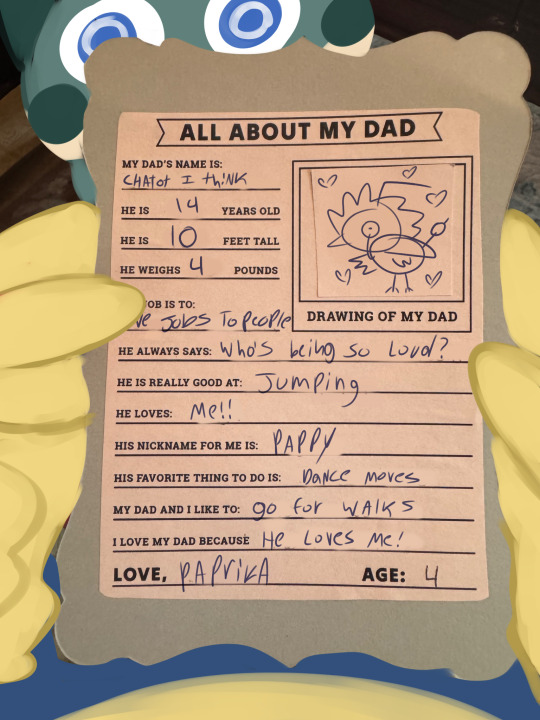 ALL ABOUT MY DAD
MY DAD'S NAME IS:
CHAtot I thiNK
HE IS 14 YEARS OLD
HE IS 10 FEET TALL
HE WEIGHS 4 POUNDS
OB IS TO:
ve Jobs To people
DRAWING OF MY DAD
HE ALWAYS SAYS: Who's being so Loud?
HE IS REALLY GOOD AT: Jumping
HE LOVES: Me!!
HIS NICKNAME FOR ME IS: PAPPY
HIS FAVORITE THING TO DO IS: Dance moves
MY DAD AND I LIKE TO: go for WALKS
I LOVE MY DAD BECAUSE He Loves Me!
LOVE, PAPrikA AGE: 4